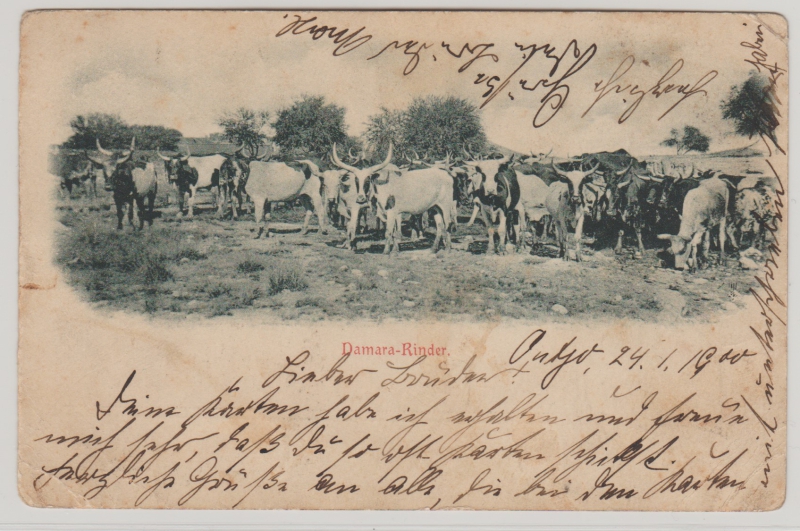 Damara-Rinder.
Outjo, 24.1.1900
Lieber Bruder!
Deine Karten habe ich erhalten und freue
mich sehr, daß Du so oft Karten schickst.
Herzliche Grüße an alle, die bei den Karten
unterschrieben
Herzlich Grüßt
Dein Bruder